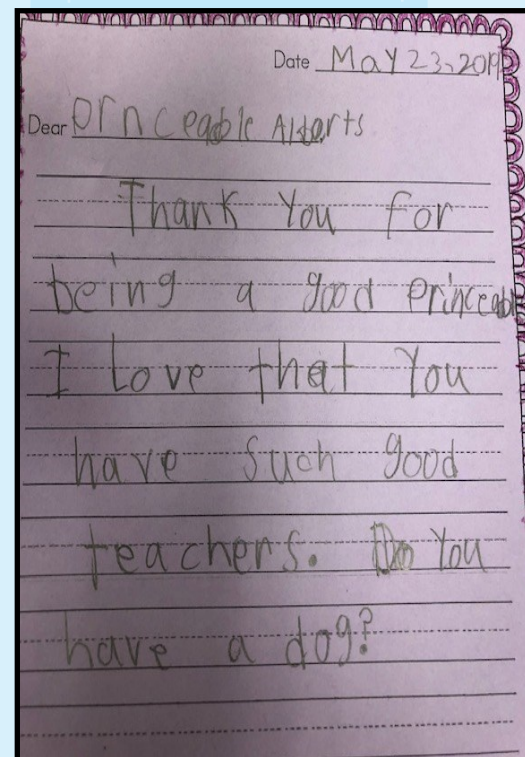 Date May 23, 2019
Dear Prnceable Aldarts
Thank You for
being a good Princeabl
I Love that You
have such good
teachers. Do You
have a dog?